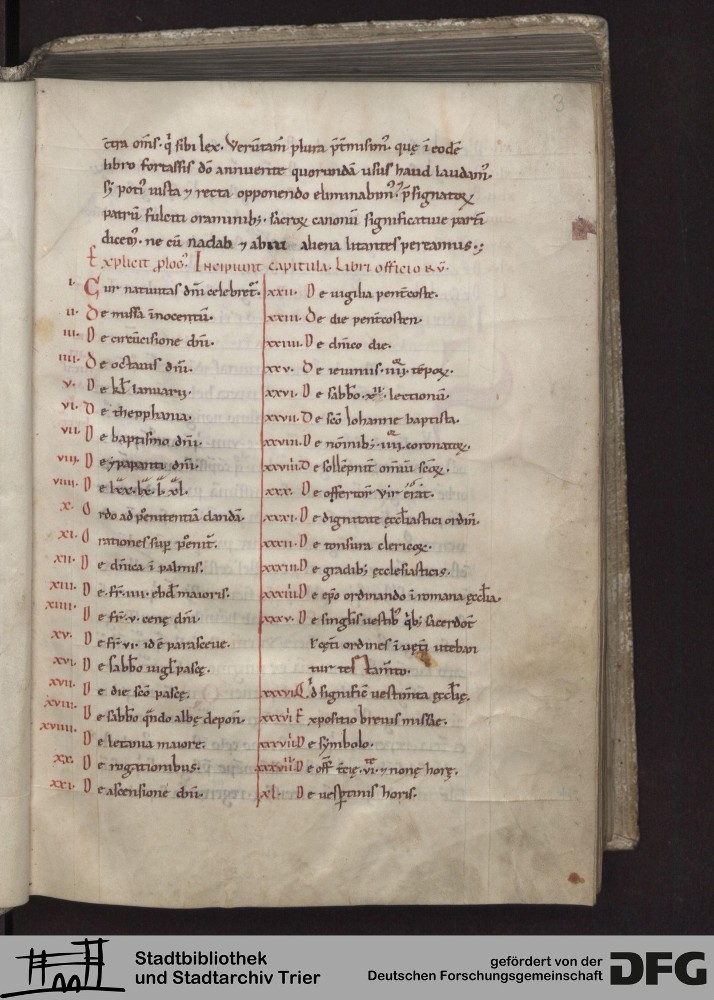 3
ċtra oīns · q̇ sibi lex · Verūtam̄ plura p̄t̄misim᷒ · quę ī eodē
libro fortassis dō annuente quorundā usus haud laudam᷒ ·
Sꝫ poti᷒ iusta ⁊ recta opponendo eliminabim᷒ · p̄signatoꝝ
patrū fulciti oraminibꝫ · sacroꝝ canonū significatiue parti
dicem᷒ · ne cū nadab ⁊ abiu aliena litantes pereamus ·
Explicit ꝓlog᷒ · Incipiunt capitula · Libri officioꝝ
i · Cur natiuitas dn̄i celebret᷒ ·
ii · De missa innocentū ·
iii · De circūcisione dn̄i ·
iiii · De octauis dn̄i ·
v · De kł Ianuarii ·
vi · De theophania ·
vii · De baptismo dn̄i ·
viii · De ypapanti dn̄i ·
viiii · De lxx · lx · l · xl ·
x · Ordo ad pęnitentiā dandā ·
xi · Orationes sup̱ pęnit̄ ·
xii · De dn̄ica ī palmis ·
xiii · De fr̄ · iiii · ebđ maioris ·
xiiii · De fr̄ · v · cenę dn̄i ·
xv · De fr̄ vi · id ē parasceue ·
xvi · De sabbo uigł pascę ·
xvii · De die sc̄o pascę ·
xviii · De sabbo qn̄do albę depon̄ ·
xviiii · De letania maiore ·
xx · De rogationibus ·
xxi · De ascensione dn̄i ·
xxii · De uigilia pentecoste ·
xxiii · De die pentecosten ·
xxiiii · De dn̄ico die ·
xxv · De ieiuniis · iiii · tēpoꝝ ·
xxvi · De sabbo · xii · lectionū ·
xxvii · De sc̄o Iohanne baptista ·
xxviii · De nōinibꝫ · iiii · coronatoꝝ ·
xxviiii · De sollēpnit̄ omniū sc̄oꝝ ·
xxx · De offertor̄
xxxi · De dignitate ęcclīastici ordin̄ ·
xxxii · De tonsura clericoꝝ ·
xxxiii · De gradibꝫ ęcclesiasticis ·
xxxiiii · De ep̄o ordinando ī romana ęccłia ·
xxxv · De singlis uestibꝫ q̇bꝫ sacerdot̄
ordines ī uet̄i uteban
tur testam̄to ·
xxxvi · Qd significn̄ uestim̄ta ęccłię ·
xxxvi Expositio breuis missae ·
xxxvii De symbolo ·
xxxviii De off̄ t̄cię · vi · ⁊ nonę horę ·
xl · De uesp̱tinis horis ·
Stadtbibliothek
und Stadtarchiv Trier
gefördert von der
Deutschen Forschungsgemeinschaft
DFG